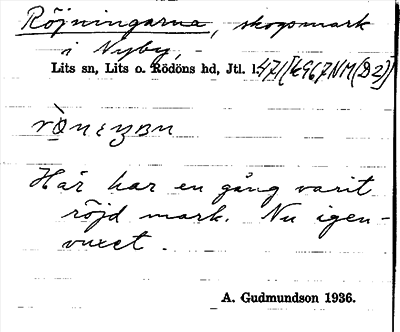 Röjningarna, skogsmark
i Nyby,
Lits sn, Lits o. Rödöns hd, Jtl. l.
Här har en gång varit
röjd mark. Nu igen-
vuxet.
A. Gudmundson 1936.